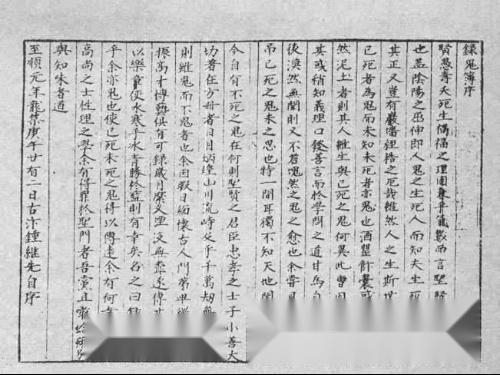 錄鬼簿序
賢愚壽夭死生禍福之理固兼乎氣數而言聖賢
也蓋陰陽之屈伸即人鬼之生死人而知夫生死
其正又豈有巖牆桎梏之厄哉雖然人之生斯世
已死者為鬼而未知未死者亦鬼也酒甖飯囊或
然泥土者則其人雖生與已死之鬼何異此曹固
其或稍知義理口發善言而於學問之道甘為自
後漠然無聞則又不若塊然之鬼之愈也余嘗見
弔已死之鬼未之思也特一間耳獨不知天地開
今自有不死之鬼在何則聖賢之君臣忠孝之士子小善大
切著在方冊者日月炳煌山川流峙及乎千萬劫無
則雖鬼而不鬼者也余因暇日緬懷古人門第卑微
振高才博藝俱有可錄歲月縻久湮沒無聞遂傳其
以樂章使水寒乎冰青勝於藍則亦幸矣名之曰錄
乎余亦鬼也使已死未死之鬼得以傳遠余又何幸
高尚之士性理之學以為得罪於聖門者吾黨且噉蛤
與知味者道
至順元年龍集庚午廿有二日古汴鍾繼先自序